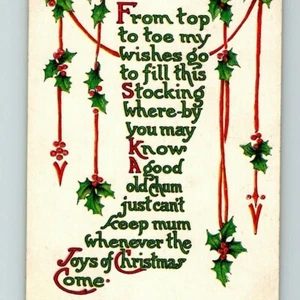 From top
to toe my
wishes go
to fill this
Stocking
where-by
you may
Know
A good
old chum
just can't
keep mum
whenever the
Joys of Christmas
Come.